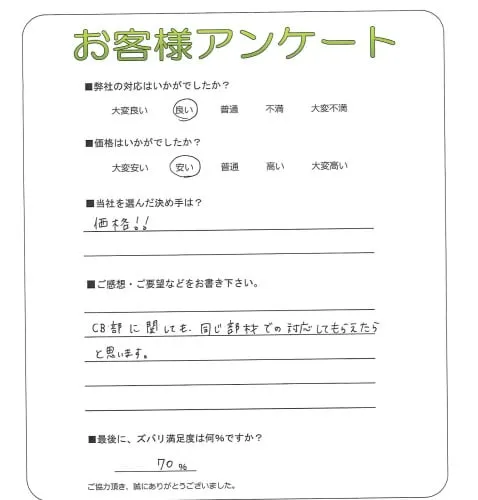 お客様アンケート
■弊社の対応はいかがでしたか？
大変良い 良い 普通 不満 大変不満
■価格はいかがでしたか？
大変安い 安い 普通 高い 大変高い
■当社を選んだ決め手は？
価格!!
■ご感想・ご要望などをお書き下さい。
CB部に関しても、同じ部材での対応してもらえたら
と思います。
■最後に、ズバリ満足度は何%ですか？
70%
ご協力頂き、誠にありがとうございました。